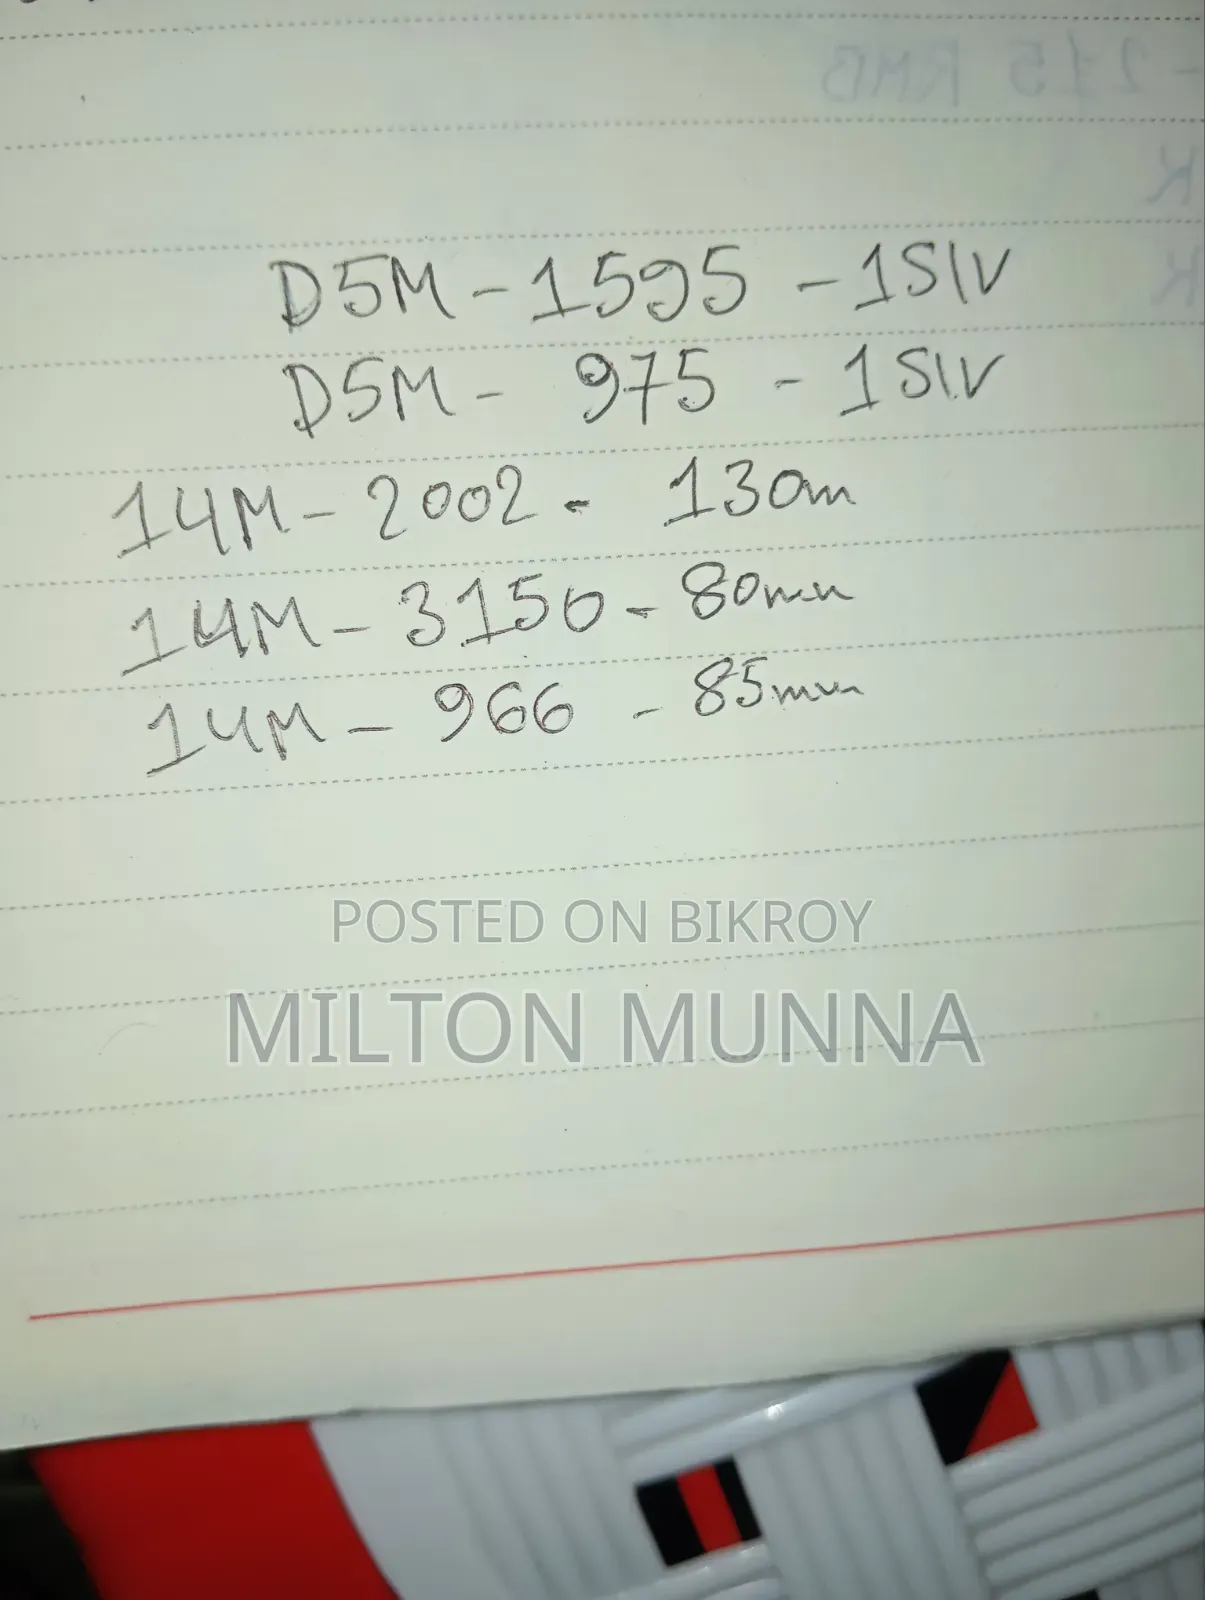 215 RMB
K
K
D5M - 1595 - 1Slv
D5M - 975 - 1Slv
14M - 2002 - 130m
14M - 3150 - 80mm
14M - 966 - 85mm
POSTED ON BIKROY
MILTON MUNNA